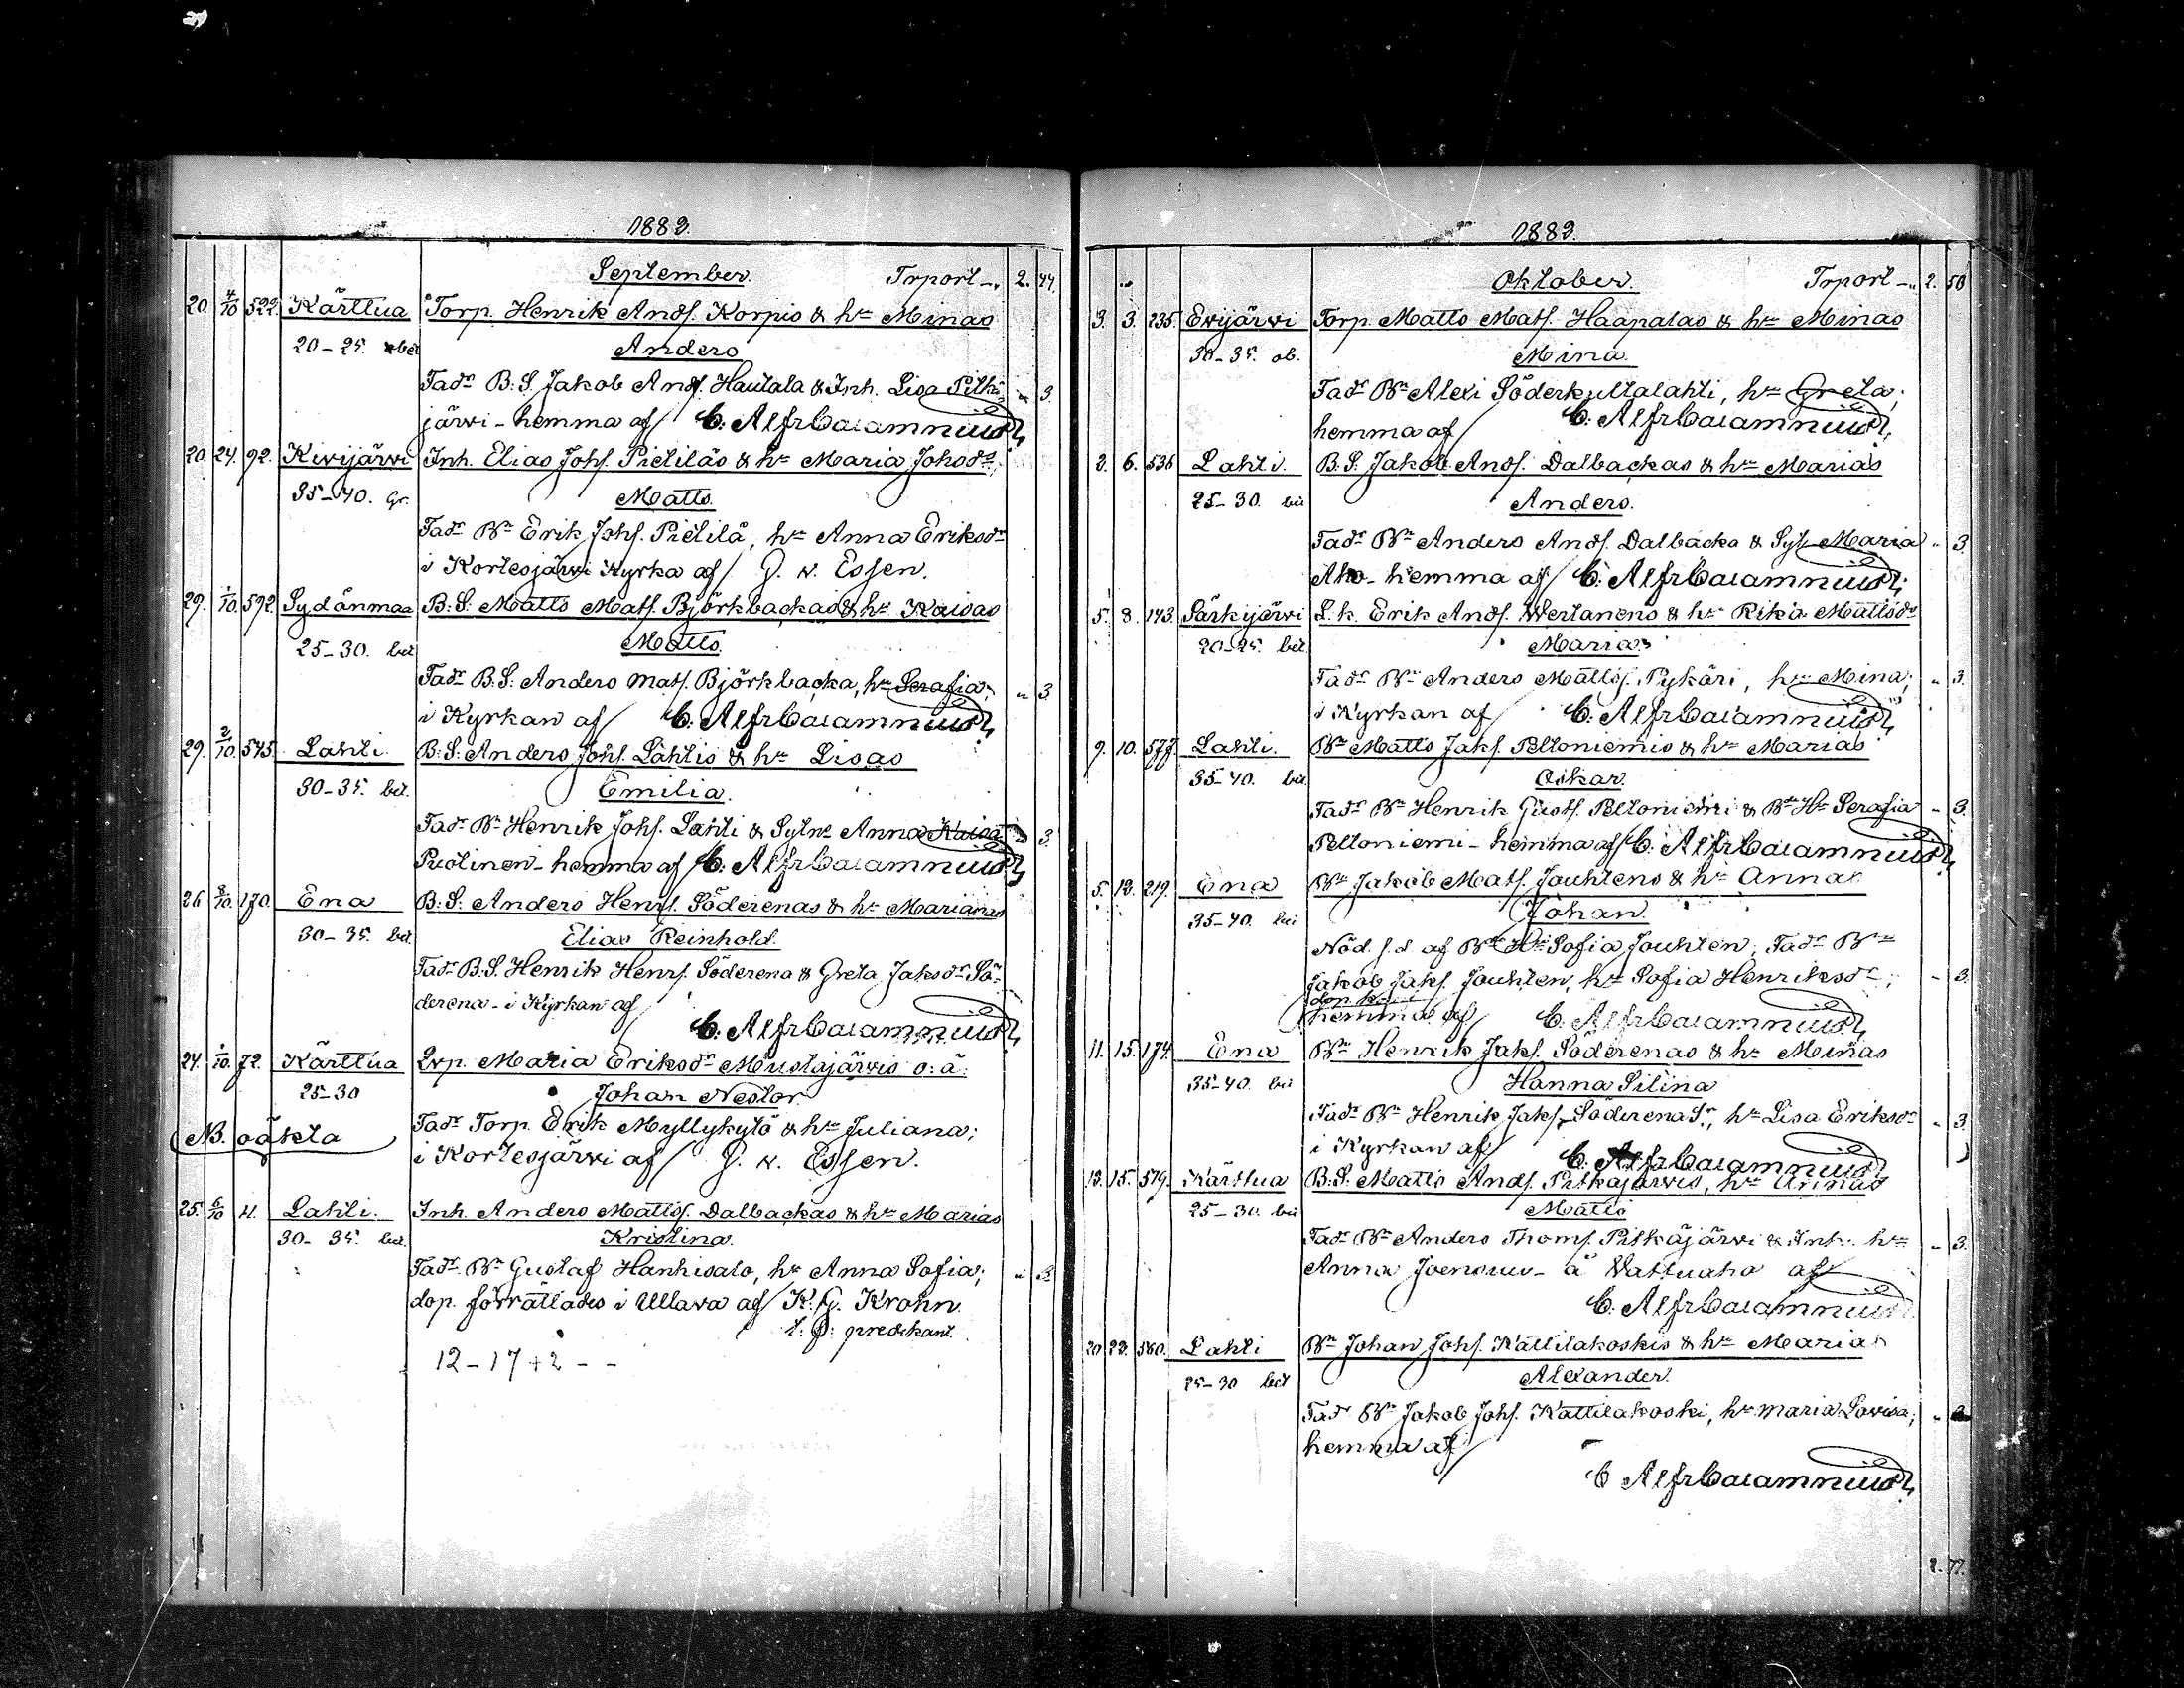 1883.
September. Trport - " 2. 44.
20. 4/10 522. Kärttua Torp. Henrik Andſ. Korpis & hn Minas
20-25. bet Anders
Fadr B.S. Jakob Andſ. Hautala & Inh. Lisa Pitkä- " 3.
järvi - hemma af C. Alfr Caiamnius
20. 24. 92. Kivijärvi Inh. Elias Johſ. Pietiläs & hn Maria Johsdr.
35-40. Gr. Matts.
Fadr Bn Erik Johſ. Pietilä, hn Anna Eriksdr
i Kortesjärvi Kyrka af G. v. Essen.
29. 1/10. 592. Sydänmaa B.S. Matts Matſ. Björkbackas & hn Kaisas
25-30. bet Matts.
Fadr B.S. Anders Matſ. Björkbacka, hn Serafia; " 3
i Kyrkan af C. Alfr Caiamnius
29. 2/10. 545. Lahti. B.S. Anders Johſ. Lahtis & hn Lisas
30-35. bet. Emilia.
Fadr Bn Henrik Johſ. Lahti & Sytn Anna Kaisa 3.
Puolinen - hemma af C. Alfr Caiamnius
26 8/10. 170. Ena B.S. Anders Henrſ. Söderenas & hn Marianas
30-35. bet. Elias Reinhold.
Fadr B.S. Henrik Henrſ. Söderena & Greta Jaksdr Sö-
derena - i Kyrkan af
C. Alfr Caiamnius
24. 1/10. 72. Kärttua Qvp. Maria Eriksdr Mustajärvis o: ä:
25-30 Johan Nestor
NB. oäkta Fadr Torp. Erik Myllykylä & hn Juliana;
i Kortesjärvi af G. v. Essen.
25. 6/10 11. Lahti. Inh. Anders Mattsſ. Dalbackas & hn Marias
30-35. bet. Kristina.
Fadr Bn Gustaf Hanhisalo, hn Anna Sofia; " 3.
dop. förrättades i Ullava af K. G. Krohn.
t. f. predikant.
12-17+2 - -
1883.
Oktober. Trport - " 2. 50
3. 3. 235. Evijärvi Torp. Matts Matſ. Haapalas & hn Minas
30-35. ob. Mina.
Fadr Bn Alexi Söderkultalahti, hn Greta;
hemma af C. Alfr Caiamnius
3. 6. 536 Lahti. B.S. Jakob Andſ. Dalbackas & hn Marias
25-30. bet Anders.
Fadr Bn Anders Andſ. Dalbacka & Sytn Maria " 3.
Aho - hemma af C. Alfr Caiamnius
5. 8. 143. Särkijärvi L.k. Erik Andſ. Wertanens & hn Rika Mattsdr
20-25. bet. Maria
Fadr Bn Anders Mattsſ. Pykäri, hn Mina; " 3.
i Kyrkan af C. Alfr Caiamnius
9. 10. 577. Lahti. Bn Matts Jakſ. Peltoniemis & hn Marias
35-40. bet. Oskar.
Fadr Bn Henrik Gustſ. Peltoniemi & Bn Hn Serafia - 3.
Peltoniemi - hemma af C. Alfr Caiamnius
5. 12. 219. Ena Bn Jakob Matſ. Jouhtens & hn Annas
35-40. bet Johan.
Nöd. f. d. af Bn Hn Sofia Jouhten, Fadr Bn
Jakob Jakſ. Jouhten, hn Sofia Henriksdr; - 3.
hemma af C. Alfr Caiamnius
11. 15. 174. Ena Bn Henrik Jakſ. Söderenas & hn Minas
35-40. bet Hanna Silina
Fadr Bn Henrik Jakſ. Söderena Sr., hn Lisa Eriksdr - 3.
i Kyrkan af C. Alfr Caiamnius
13. 15. 579. Kärttua B.S. Matts Andſ. Pitkäjärvis, hn Annas
25-30. bet Matts
Fadr Bn Anders Thomſ. Pitkäjärvi & Inh. hn - 3.
Anna Joensuu - å Vattuaho af
C. Alfr Caiamnius
20 22. 580. Lahti Bn Johan Johſ. Kattilakoskis & hn Marias
25-30 bet Alexander.
Fadr Bn Jakob Johſ. Kattilakoski, hn Maria Lovisa; "
hemma af
C Alfr Caiamnius
2. 77.